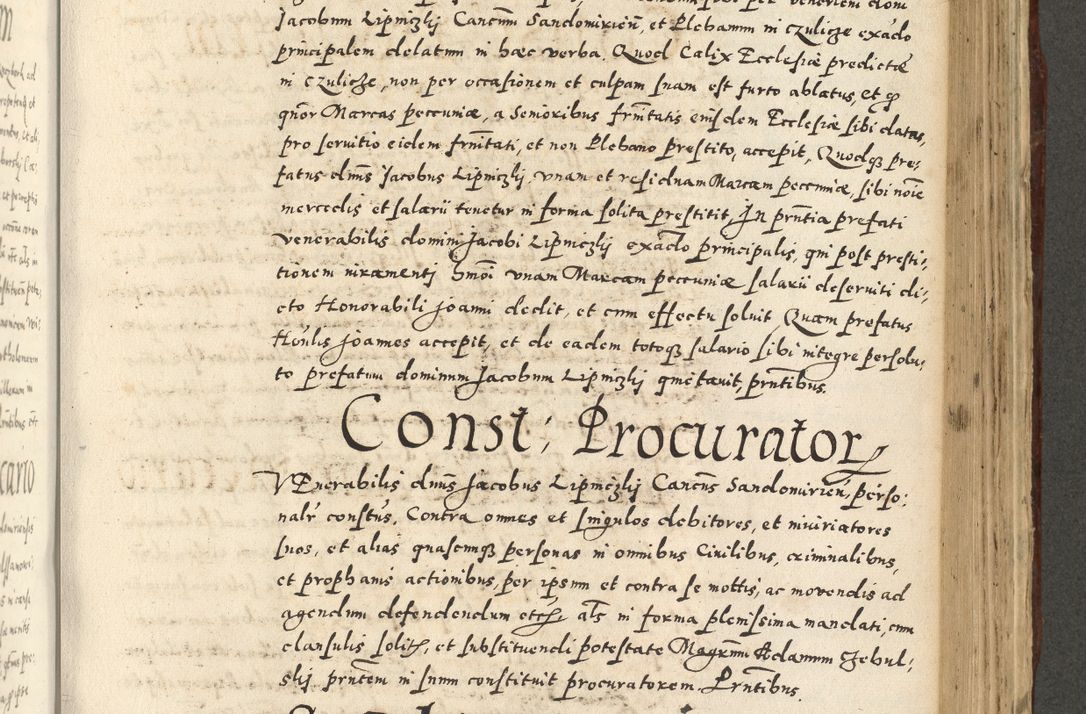 Jacobum Lipniczkij Cancnũ Sandomirien̄, et Plebanum in Czulicze ex ac̄to
principalem delatum in haec verba. Quod Calix Ecclesiæ predictæ
in Czulicze, non per occasionem et culpam suam est furto ablatus, et q̃
q̃nor Marcas pecuniæ, a Senioribus fr̃nitatis eiusdem Ecclesiæ sibi datas,
pro seruitio eidem fr̃nitati, et non Plebano prestito, accepit, Quodq3 pre-
fatus dn̄us Jacobus Lipniczkij, vnam et residuam Marcam pecuniæ, sibi noīe
mercedis et salarii tenetur in forma solita prestitit, In pñtia prefati
venerabilis domini Jacobi Lipniczkij ex ac̄to principalis, qui post presti-
tionem iuramenti hm̄oi vnam Marcam pecuniæ salarii deseruiti di-
cto Honorabili Joanni dedit, et cum effectu soluit Quam prefatus
Hon̄lis Joannes accepit, et de eadem totoq3 salario sibi integre persolu-
to prefatum dominum Jacobum Lipniczkij quietauit, pñtibus.
Const: Procurator
VEnerabilis dn̄us Jacobus Lipniczkij Cancñs Sandomirien̄, perso-
nalr̄ const̃us, Contra omnes et singulos debitores, et iniuriatores
suos, et alias quascunq3 personas in omnibus Ciuilibus, criminalibus,
et prophanis actionibus, per ipsum et contra se mottis, ac mouendis ad
agendum defendendum etc̃, als̃ in forma plenissima mandati, cum
clausulis solitis, et substituendi potestate Magr̃um Adamum Czebul-
skij pñtem in suum constituit procuratorem. Pr̃ntibus.